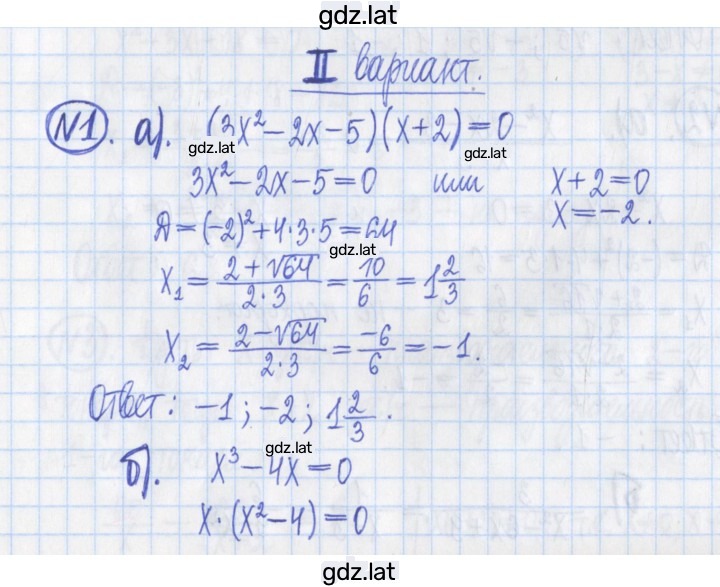 gdz.lat
II вариант.
№1. а). (3x² - 2x - 5)(x + 2) = 0
gdz.lat gdz.lat
3x² - 2x - 5 = 0 или x + 2 = 0
x = -2.
Д = (-2)² + 4·3·5 = 64
gdz.lat
x₁ = (2 + √64)/(2·3) = 10/6 = 1 2/3
x₂ = (2 - √64)/(2·3) = -6/6 = -1.
Ответ: -1; -2; 1 2/3.
gdz.lat
б). x³ - 4x = 0
x·(x² - 4) = 0
gdz.lat